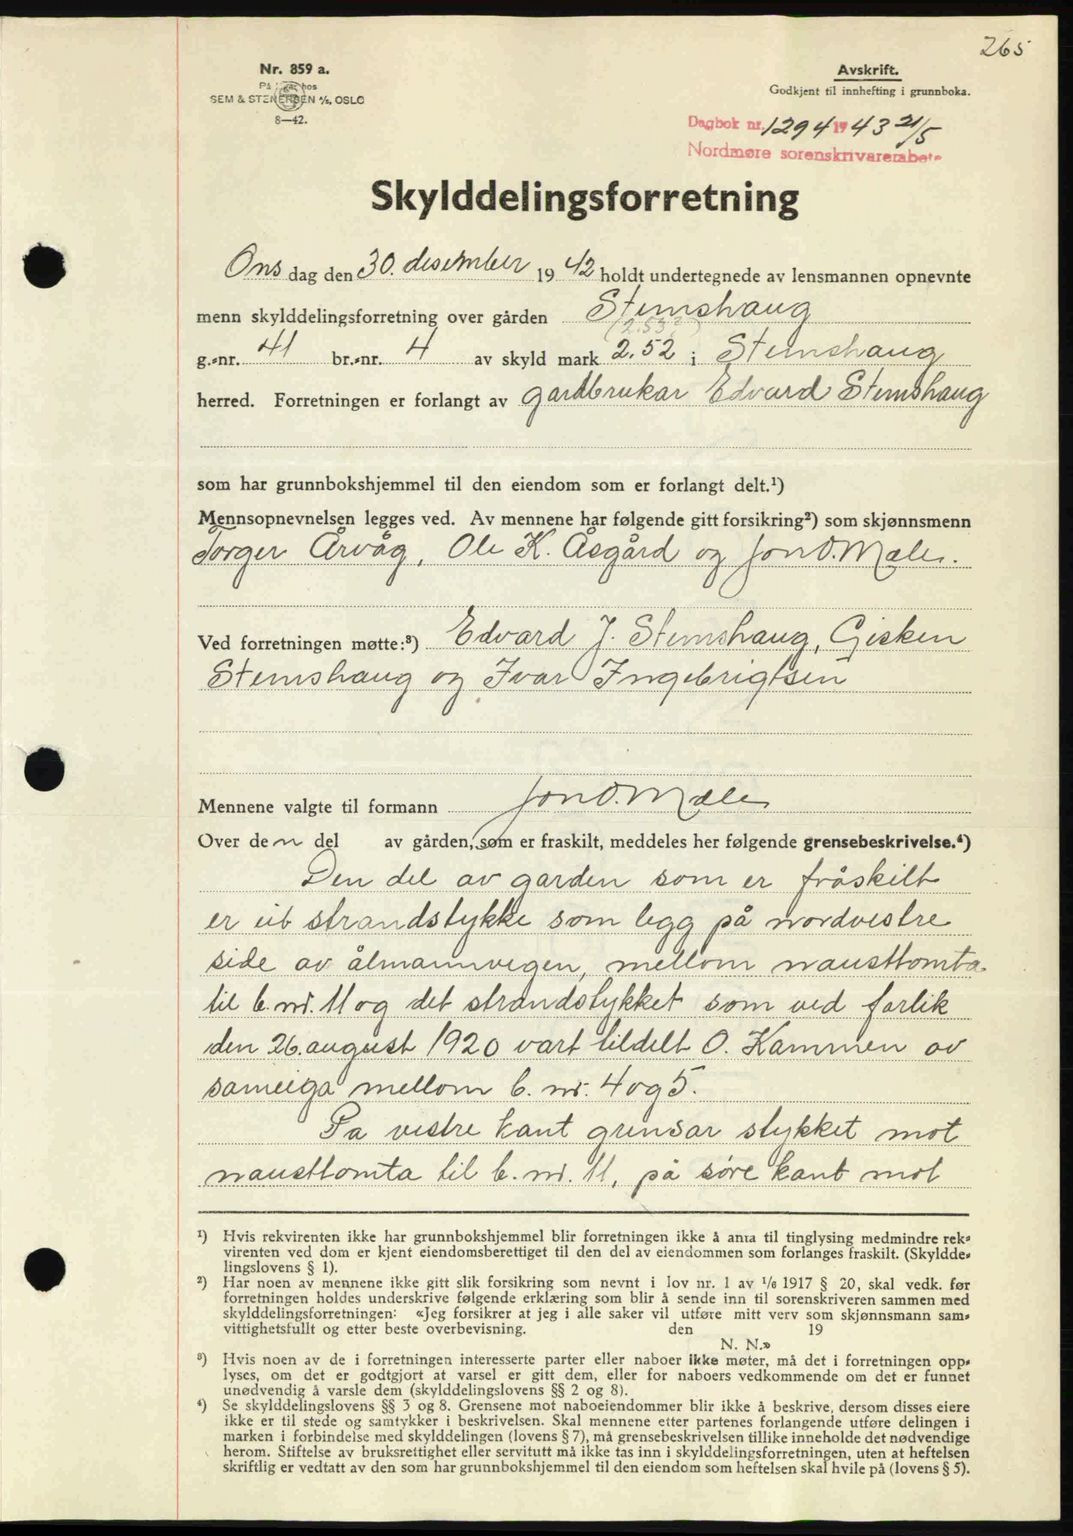 265
Nr. 859 a.
På lager hos
SEM & STENERSEN A/S, OSLO
8—42.
Avskrift.
Godkjent til innhefting i grunnboka.
Dagbok nr. 1294 1943 21/5
Nordmøre sorenskrivarembete
Skylddelingsforretning
Ons dag den 30. desember 1942 holdt undertegnede av lensmannen opnevnte
menn skylddelingsforretning over gården Stemshaug
(2.53?)
g.-nr. 41 br.-nr. 4 av skyld mark 2,52 i Stemshaug
herred. Forretningen er forlangt av gardbrukar Edvard Stemshaug
som har grunnbokshjemmel til den eiendom som er forlangt delt.¹)
Mennsopnevnelsen legges ved. Av mennene har følgende gitt forsikring²) som skjønnsmenn
Torger Årvåg, Ole K. Åsgård og Jon O. Mæle.
Ved forretningen møtte:³) Edvard J. Stemshaug, Gisken
Stemshaug og Ivar Ingebrigtsen
Mennene valgte til formann Jon O. Mæle
Over den del av gården, som er fraskilt, meddeles her følgende grensebeskrivelse.⁴)
Den del av garden som er fråskilt
er eit strandstykke som ligg på nordvestre
side av ålmannvegen, mellom nausttomta
til b.nr. 11 og det strandstykket som ved forlik
den 26. august 1920 vart tildelt O. Kammen av
sameiga mellom b. nr. 4 og 5.
På vestre kant grensar stykket mot
nausttomta til b. nr. 11, på søre kant mot
¹) Hvis rekvirenten ikke har grunnbokshjemmel blir forretningen ikke å anta til tinglysing medmindre rek-
virenten ved dom er kjent eiendomsberettiget til den del av eiendommen som forlanges fraskilt. (Skyldde-
lingslovens § 1).
²) Har noen av mennene ikke gitt slik forsikring som nevnt i lov nr. 1 av 1/6 1917 § 20, skal vedk. før
forretningen holdes underskrive følgende erklæring som blir å sende inn til sorenskriveren sammen med
skylddelingsforretningen: «Jeg forsikrer at jeg i alle saker vil utføre mitt verv som skjønnsmann sam-
vittighetsfullt og etter beste overbevisning. den 19
N. N.»
³) Hvis noen av de i forretningen interesserte parter eller naboer ikke møter, må det i forretningen opp-
lyses, om det er godtgjort at varsel er gitt dem, eller for naboers vedkommende om det er funnet
unødvendig å varsle dem (skylddelingslovens §§ 2 og 8).
⁴) Se skylddelingslovens §§ 3 og 8. Grensene mot naboeiendommer blir ikke å beskrive, dersom disses eiere
ikke er til stede og samtykker i beskrivelsen. Skal mennene etter partenes forlangende utføre delingen i
marken i forbindelse med skylddelingen (lovens § 7), må grensebeskrivelsen tillike inneholde det nødvendige
herom. Stiftelse av bruksrettighet eller servitutt må ikke tas inn i skylddelingsforretningen, uten at heftelsen
skriftlig er vedtatt av den som har grunnbokshjemmel til den eiendom som heftelsen skal hvile på (lovens § 5).